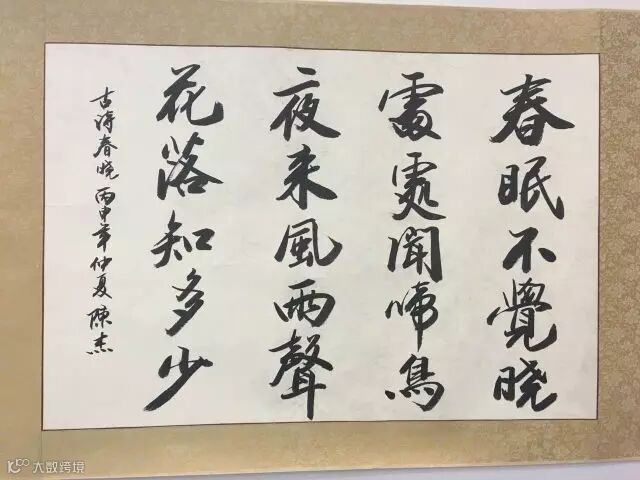 春眠不覺晓
處處聞啼鳥
夜来風雨聲
花落知多少
古诗春晓丙申年仲夏陳杰
大数跨境